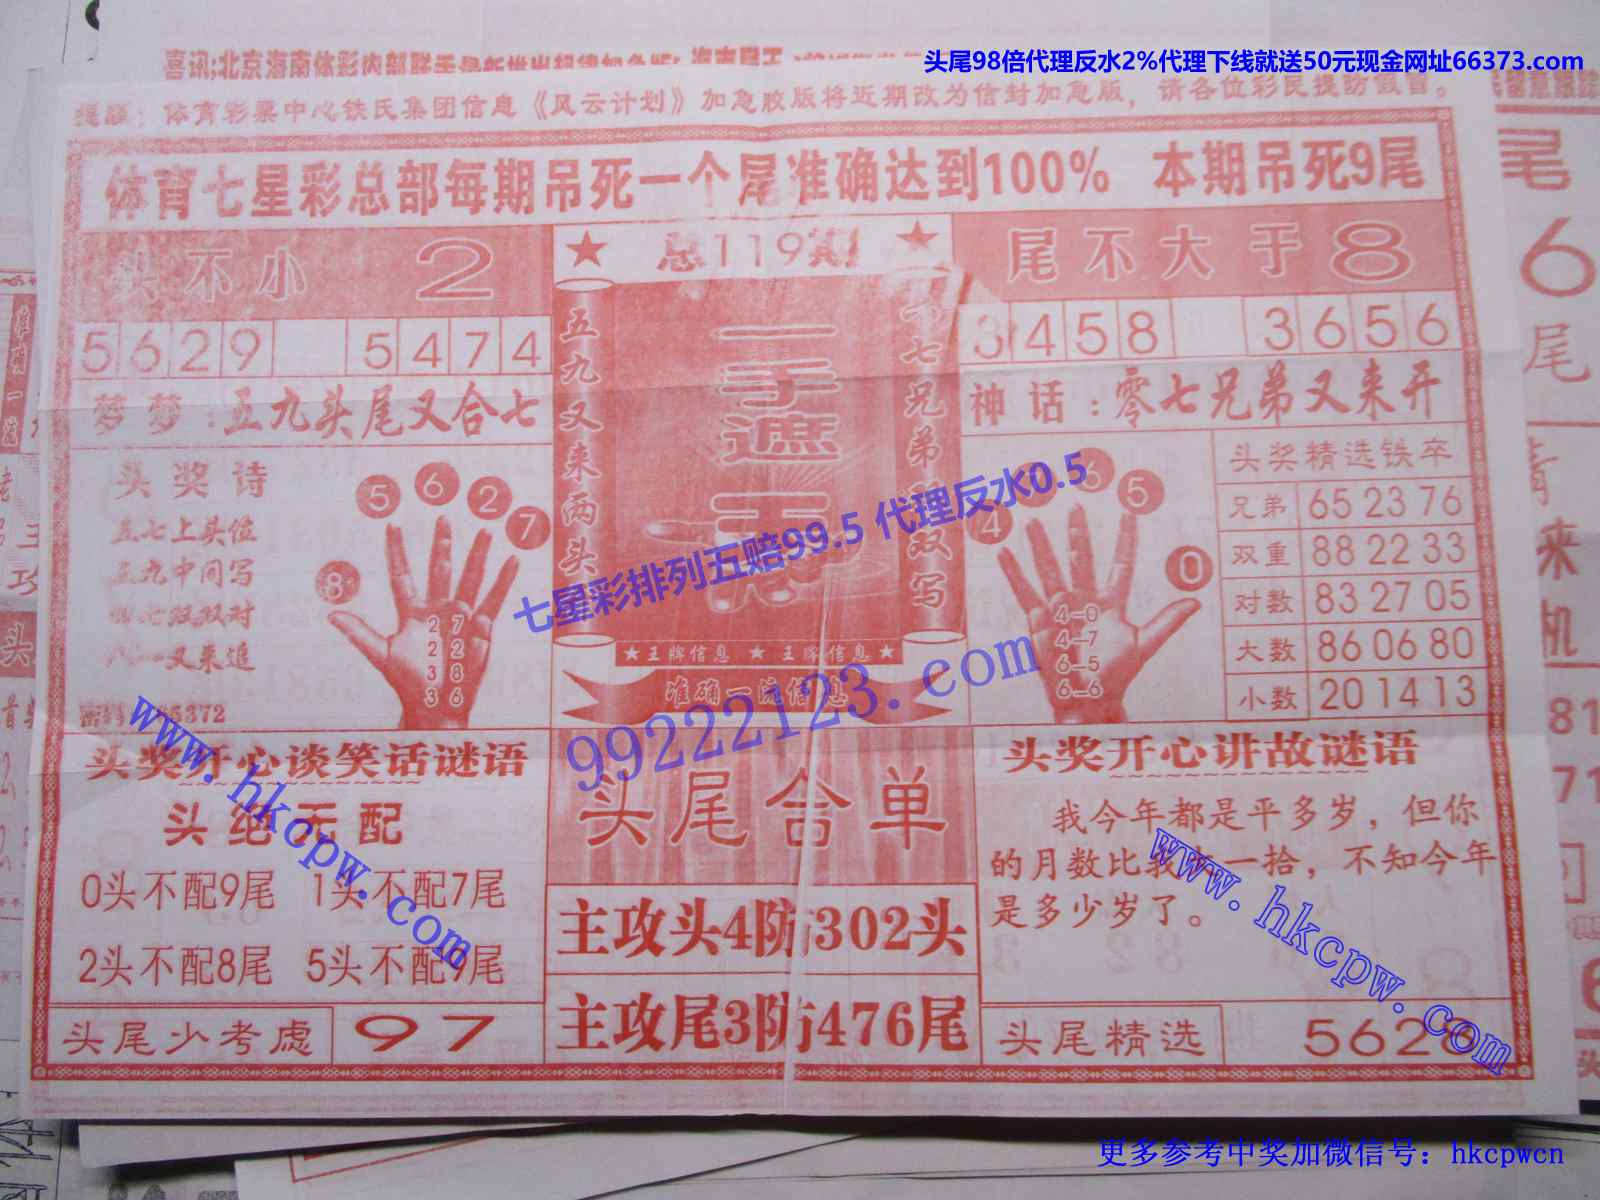 头尾98倍代理反水2%代理下线就送50元现金网址66373.com
提醒：体育彩票中心铁氏集团信息《风云计划》加急胶版将近期改为信封加急版，请各位彩民提防假冒。
体育七星彩总部每期吊死一个尾准确达到100% 本期吊死9尾
头不小 2
总119期
尾不大于8
5629 5474
3458 3656
梦梦：五九头尾又合七
神话：零七兄弟又来开
五九又来两头
一手遮天
头奖诗
五七上头位
五九中间写
5 6 2 7 8
2 7
2 2
3 8
3 6
4 6 5 0
4-0
4-7
6-5
6-6
头奖精选铁卒
兄弟 65 23 76
双重 88 22 33
对数 83 27 05
大数 86 06 80
小数 20 14 13
★王牌信息 ★ 王牌信息★
准确一流信息
七星彩排列五赔99.5 代理反水0.5
99222123.com
www.hkcpw.com
头奖开心谈笑话谜语
头绝无配
0头不配9尾 1头不配7尾
2头不配8尾 5头不配9尾
头尾少考虑 97
头尾合单
主攻头4防302头
主攻尾3防476尾
头奖开心讲故谜语
我今年都是平多岁，但你
的月数比我大一拾，不知今年
是多少岁了。
www.hkcpw.com
头尾精选 5628
尾
6
尾
更多参考中奖加微信号：hkcpwcn